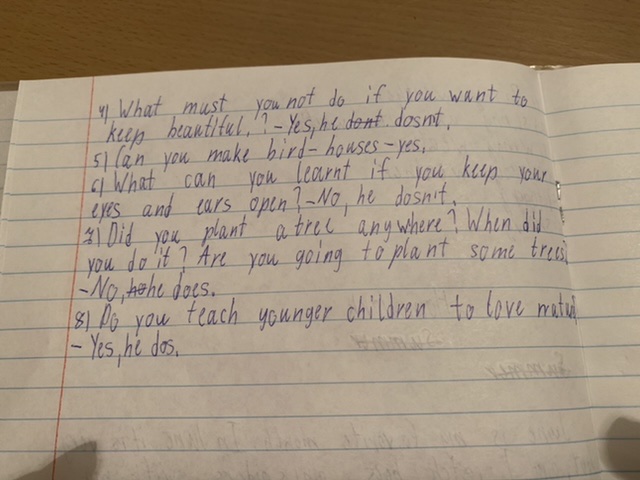 4) What must you not do if you want to
keep beautiful.? - Yes, he dont dosnt.
5) Can you make bird-houses - yes.
6) What can you learnt if you keep your
eyes and ears open? - No, he dosn't.
7) Did you plant a tree anywhere? When did
you do it? Are you going to plant some trees
- No, he he does.
8) Do you teach younger children to love
- Yes, he dos.
Summer